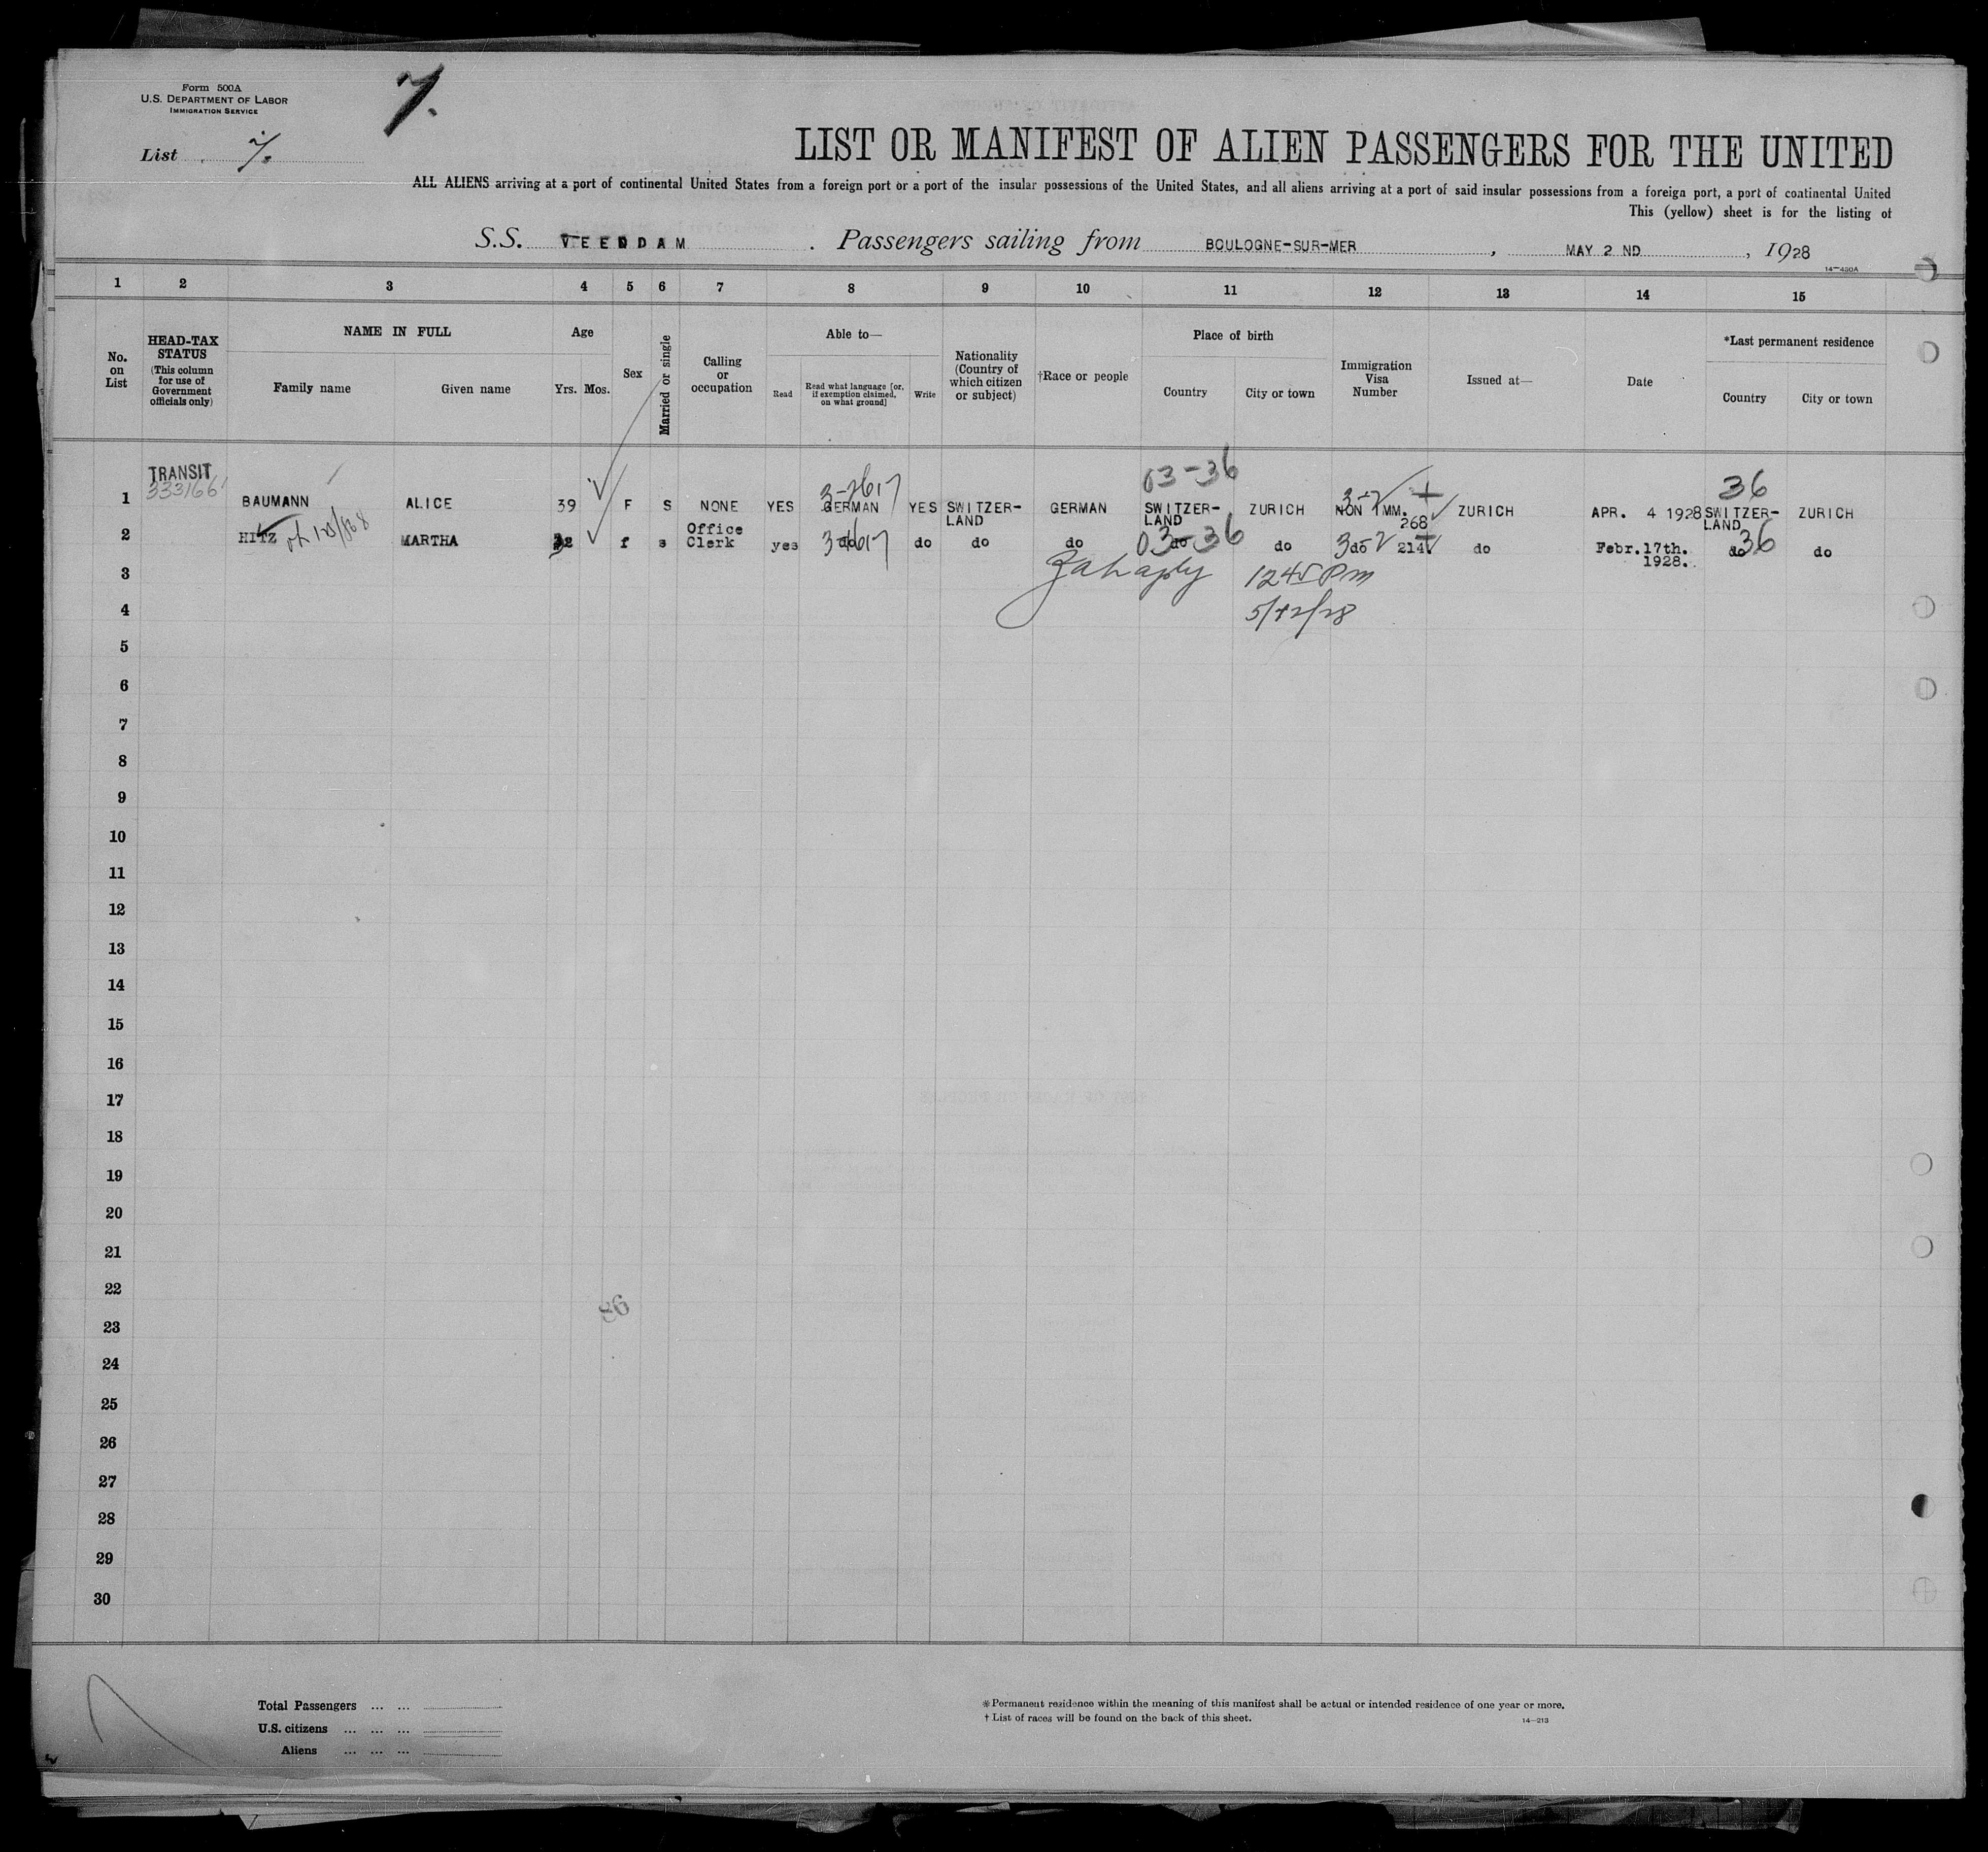 Form 500A
U.S. DEPARTMENT OF LABOR
IMMIGRATION SERVICE
7.
List 7.
LIST OR MANIFEST OF ALIEN PASSENGERS FOR THE UNITED
ALL ALIENS arriving at a port of continental United States from a foreign port or a port of the insular possessions of the United States, and all aliens arriving at a port of said insular possessions from a foreign port, a port of continental United
This (yellow) sheet is for the listing of
S.S. VEENDAM . Passengers sailing from BOULOGNE-SUR-MER , MAY 2 ND , 1928
14—430A
1 2 3 4 5 6 7 8 9 10 11 12 13 14 15
No. on List
HEAD-TAX STATUS
(This column for use of Government officials only)
NAME IN FULL
Family name Given name
Age
Yrs. Mos.
Sex
Married or single
Calling or occupation
Able to—
Read
Read what language [or, if exemption claimed, on what ground]
Write
Nationality (Country of which citizen or subject)
†Race or people
Place of birth
Country City or town
Immigration Visa Number
Issued at—
Date
*Last permanent residence
Country City or town
TRANSIT 03-36 36
1 BAUMANN ALICE 39 F S NONE YES GERMAN YES SWITZER-LAND GERMAN SWITZER-LAND ZURICH NON IMM. 268 ZURICH APR. 4 1928 SWITZER-LAND ZURICH
2 HITZ MARTHA f s Office Clerk yes do do do do 03-36 do do do 214 do Febr. 17th. 1928. do 36 do
3 1245 Pm
4 5/12/28
5
6
7
8
9
10
11
12
13
14
15
16
17
18
19
20
21
22
86
23
24
25
26
27
28
29
30
Total Passengers ... ...
U.S. citizens ... ... ...
Aliens ... ... ...
*Permanent residence within the meaning of this manifest shall be actual or intended residence of one year or more.
† List of races will be found on the back of this sheet.
14—213